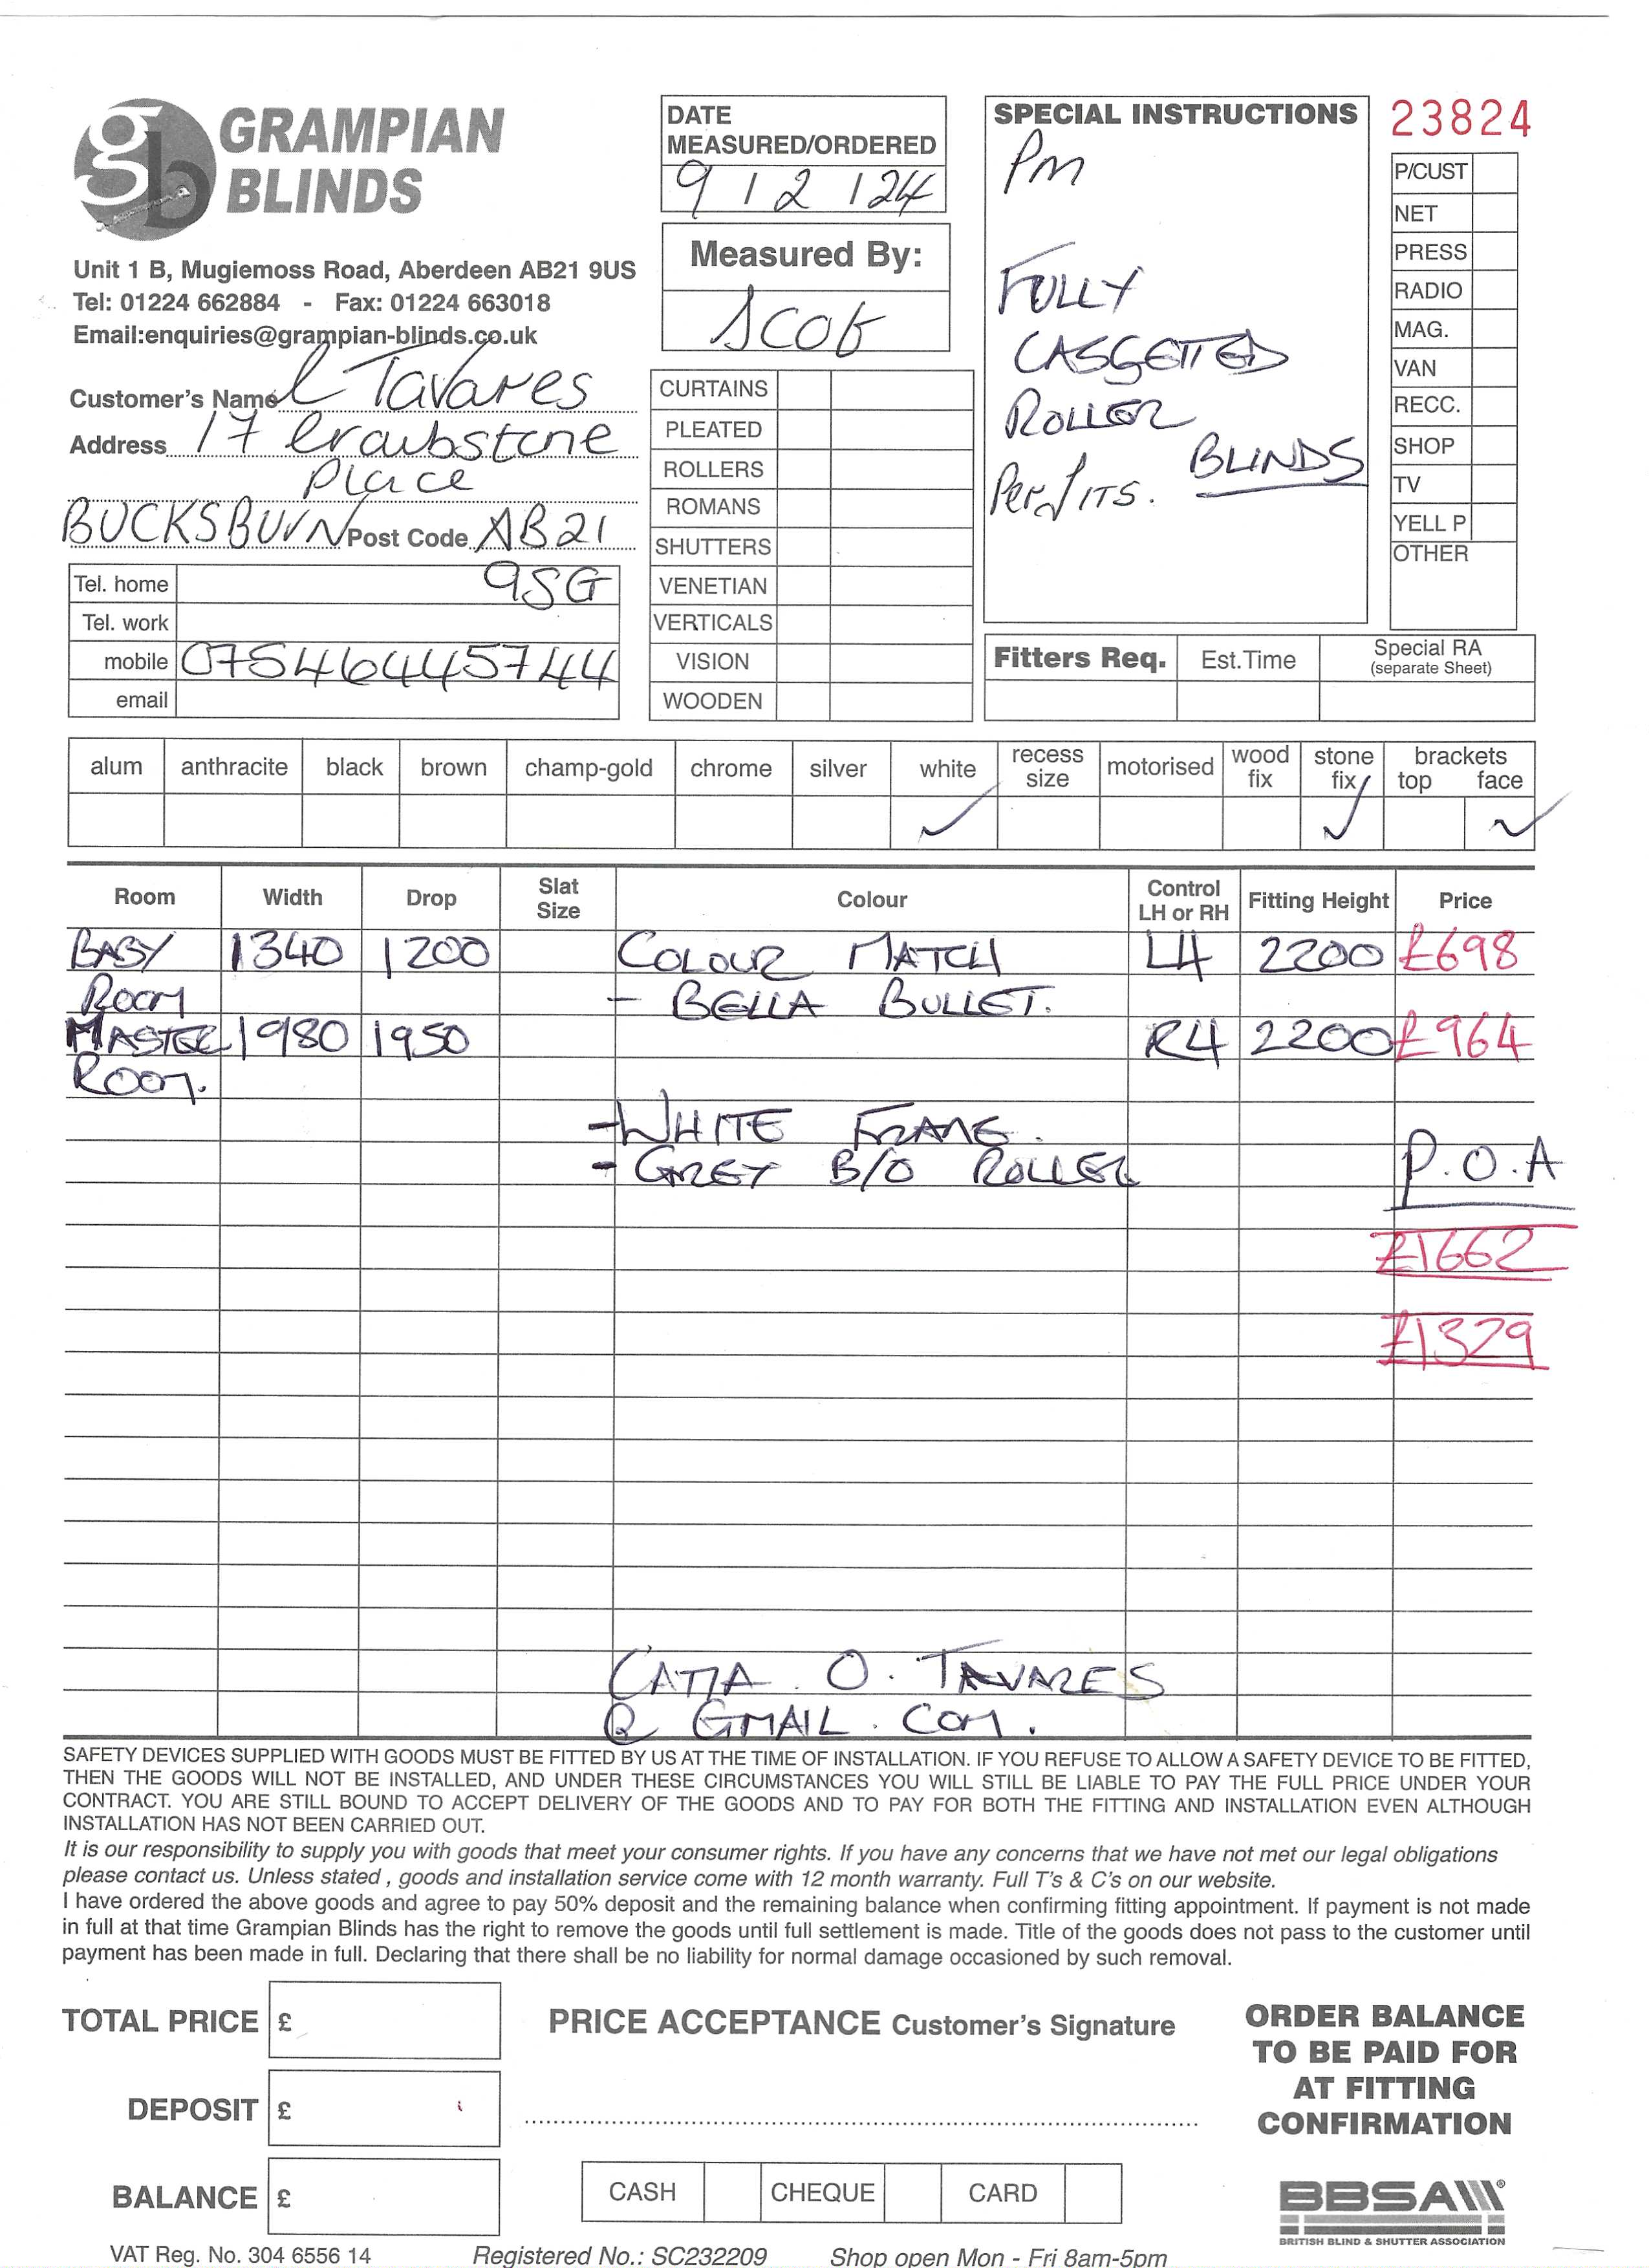 GRAMPIAN
BLINDS
Unit 1 B, Mugiemoss Road, Aberdeen AB21 9US
Tel: 01224 662884 - Fax: 01224 663018
Email:enquiries@grampian-blinds.co.uk
Customer's Name C Tavares
Address 17 Craibstone
Place
BUCKSBURN Post Code AB21
9SG
Tel. home
Tel. work
mobile 07546445744
email
DATE
MEASURED/ORDERED
9 12 124
Measured By:
CURTAINS
PLEATED
ROLLERS
ROMANS
SHUTTERS
VENETIAN
VERTICALS
VISION
WOODEN
SPECIAL INSTRUCTIONS
PM
FULLY
CASSETTED
ROLLER
BLINDS
23824
P/CUST
NET
PRESS
RADIO
MAG.
VAN
RECC.
SHOP
TV
YELL P
OTHER
Fitters Req. Est.Time Special RA
(separate Sheet)
alum anthracite black brown champ-gold chrome silver white recess size motorised wood fix stone fix brackets top face
Room Width Drop Slat Size Colour Control LH or RH Fitting Height Price
BABY 1340 1200 COLOUR MATCH LH 2200 £698
ROOM - BELLA BULLET.
MASTER 1980 1950 RH 2200 £964
ROOM.
- WHITE FRAME.
- GREY B/O ROLLER P.O.A
£1662
£1329
CATIA.O.TAVARES
@ GMAIL.COM.
SAFETY DEVICES SUPPLIED WITH GOODS MUST BE FITTED BY US AT THE TIME OF INSTALLATION. IF YOU REFUSE TO ALLOW A SAFETY DEVICE TO BE FITTED,
THEN THE GOODS WILL NOT BE INSTALLED, AND UNDER THESE CIRCUMSTANCES YOU WILL STILL BE LIABLE TO PAY THE FULL PRICE UNDER YOUR
CONTRACT. YOU ARE STILL BOUND TO ACCEPT DELIVERY OF THE GOODS AND TO PAY FOR BOTH THE FITTING AND INSTALLATION EVEN ALTHOUGH
INSTALLATION HAS NOT BEEN CARRIED OUT.
It is our responsibility to supply you with goods that meet your consumer rights. If you have any concerns that we have not met our legal obligations
please contact us. Unless stated , goods and installation service come with 12 month warranty. Full T's & C's on our website.
I have ordered the above goods and agree to pay 50% deposit and the remaining balance when confirming fitting appointment. If payment is not made
in full at that time Grampian Blinds has the right to remove the goods until full settlement is made. Title of the goods does not pass to the customer until
payment has been made in full. Declaring that there shall be no liability for normal damage occasioned by such removal.
TOTAL PRICE £
DEPOSIT £
BALANCE £
PRICE ACCEPTANCE Customer's Signature
CASH CHEQUE CARD
ORDER BALANCE
TO BE PAID FOR
AT FITTING
CONFIRMATION
BBSA
BRITISH BLIND & SHUTTER ASSOCIATION
VAT Reg. No. 304 6556 14 Registered No.: SC232209 Shop open Mon - Fri 8am-5pm